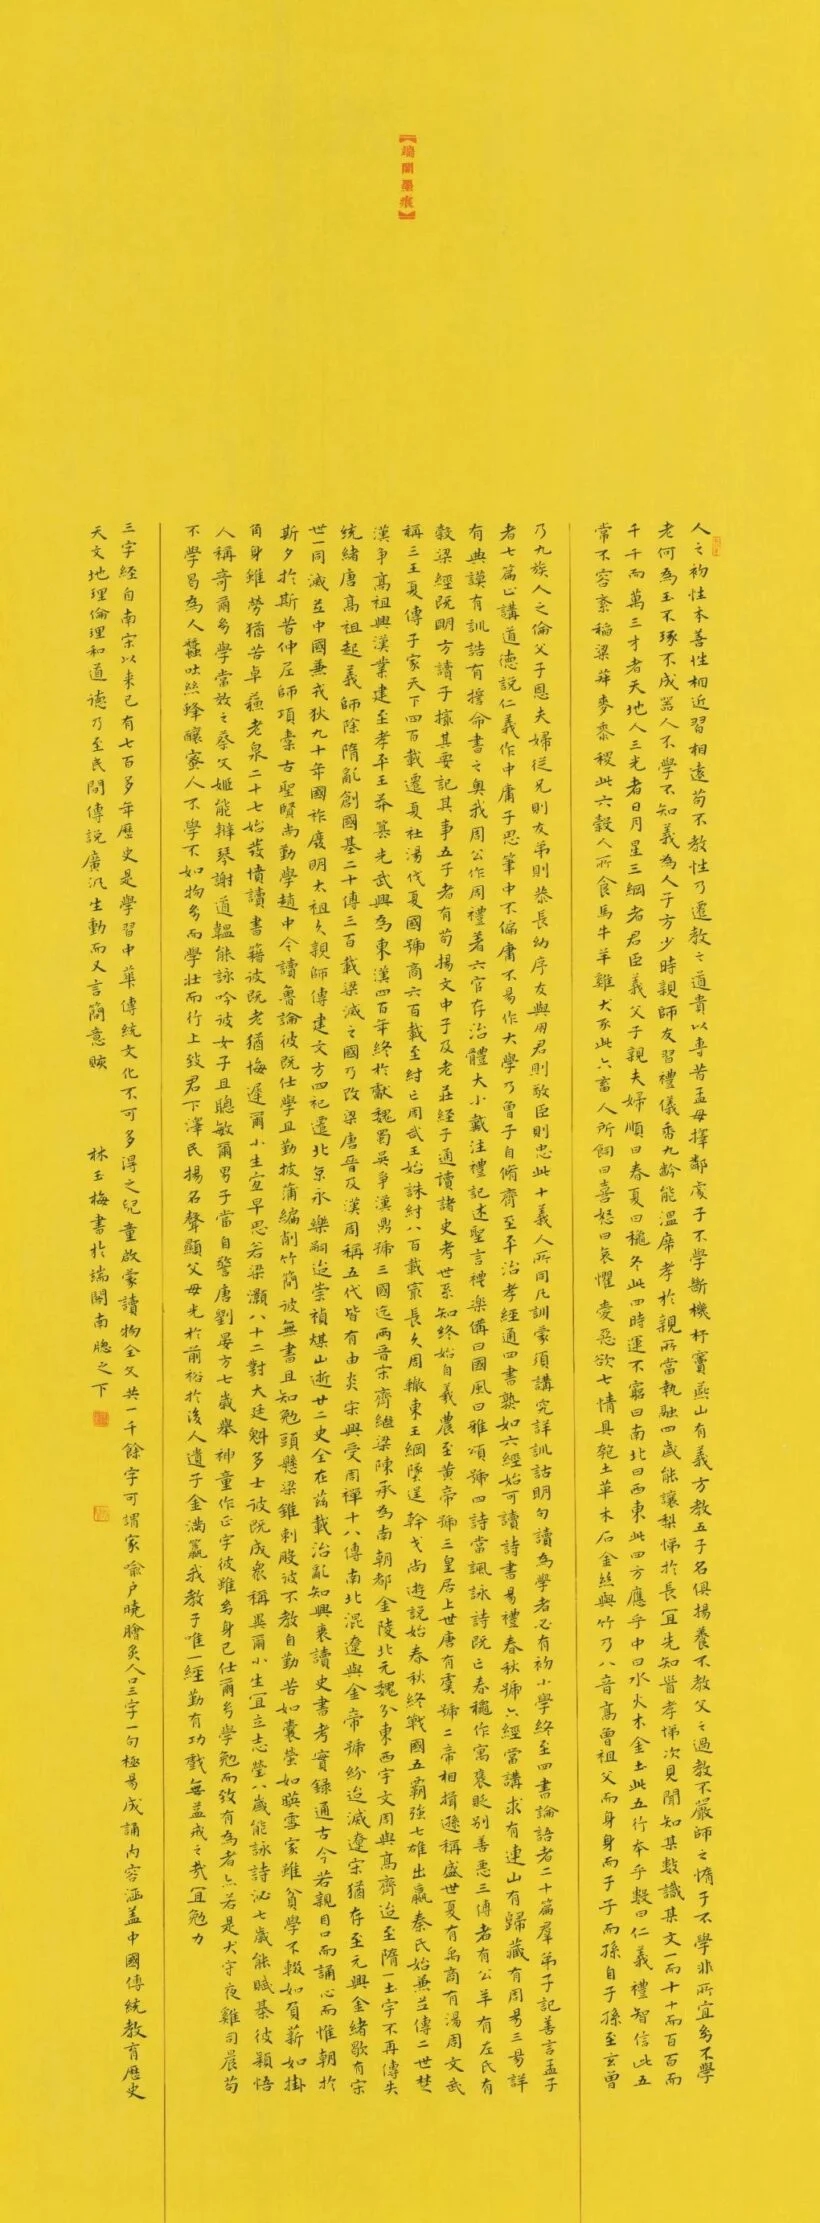 【端閑墨痕】
人之初性本善性相近習相遠苟不教性乃遷教之道貴以專昔孟母擇鄰處子不學斷機杼竇燕山有義方教五子名俱揚養不教父之過教不嚴師之惰子不學非所宜幼不學
老何為玉不琢不成器人不學不知義為人子方少時親師友習禮儀香九齡能溫席孝於親所當執融四歲能讓梨悌於長宜先知首孝悌次見聞知某數識某文一而十十而百百而
千千而萬三才者天地人三光者日月星三綱者君臣義父子親夫婦順曰春夏曰穐冬此四時運不窮曰南北曰西東此四方應乎中曰水火木金土此五行本乎數曰仁義禮智信此五
常不容紊稲梁菽麥黍稷此六穀人所食馬牛羊雞犬豕此六畜人所飼曰喜怒曰哀懼愛惡欲七情具匏土革木石金絲與竹乃八音高曾祖父而身身而子子而孫自子孫至玄曾
乃九族人之倫父子恩夫婦從兄則友弟則恭長幼序友與朋君則敬臣則忠此十義人所同凡訓蒙須講究詳訓詁明句讀為學者必有初小學終至四書論語者二十篇羣弟子記善言孟子
者七篇止講道德說仁義作中庸子思筆中不偏庸不易作大學乃曾子自脩齊至平治孝經通四書熟如六經始可讀詩書易禮春秋號六經當講求有連山有歸藏有周易三易詳
有典謨有訓誥有誓命書之奥我周公作周禮著六官存治體大小戴注禮記述聖言禮楽備曰國風曰雅頌號四詩當諷詠詩既亡春穐作寓褒貶別善惡三傳者有公羊有左氏有
穀梁經既明方讀子撮其要記其事五子者有荀揚文中子及老莊経子通讀諸史考世系知終始自羲農至黄帝號三皇居上世唐有虞號二帝相揖遜稱盛世夏有禹商有湯周文武
稱三王夏傳子家天下四百載遷夏社湯伐夏國號商六百載至紂亡周武王始誅紂八百載寂長久周轍東王綱墜逞幹戈尚遊說始春秋終戰國五霸強七雄出嬴秦氏始兼並傳二世楚
漢爭高祖興漢業建至孝平王莽篡光武興為東漢四百年終於獻魏蜀吳爭漢鼎號三國迄兩晉宋齊繼梁陳承為南朝都金陵北元魏分東西宇文周與高齊迨至隋一土宇不再傳失
統緒唐高祖起義師除隋亂創國基二十傳三百載梁滅之國乃改梁唐晉及漢周稱五代皆有由炎宋興受周禪十八傳南北混遼與金帝號紛迨滅遼宋猶存至元興金緒歇有宋
世一同滅並中國兼戎狄九十年國祚廢明太祖久親師傳建文方四祀遷北京永樂嗣迨崇禎煤山逝廿二史全在茲載治亂知興衰讀史書考實録通古今若親目口而誦心而惟朝於
斯夕於斯昔仲尼師項橐古聖賢尚勤學趙中令讀魯論彼既仕學且勤披蒲編削竹簡彼無書且知勉頭懸梁錐刺股彼不教自勤苦如囊螢如暎雪家雖貧學不輟如負薪如掛
角身雖勞猶苦卓蘇老泉二十七始發憤讀書籍彼既老猶悔遲爾小生宜早思若梁灝八十二對大廷魁多士彼既成衆稱異爾小生宜立志瑩八歲能詠詩泌七歲能賦棊彼穎悟
人稱奇爾多學當效之蔡文姬能辯琴謝道韞能詠吟彼女子且聰敏爾男子當自警唐劉晏方七歲舉神童作正字彼雖多身已仕爾多學勉而致有為者亦若是犬守夜雞司晨苟
不學曷為人蠶吐絲蜂釀蜜人不學不如物多而學壯而行上致君下澤民揚名聲顯父母光於前裕於後人遺子金滿籯我教子唯一經勤有功戲無益戒之哉宜勉力
三字経自南宋以来已有七百多年歷史是學習中華傳統文化不可多得之兒童啟蒙讀物全文共一千餘字可謂家喻戶曉膾炙人口三字一句極易成誦内容涵蓋中國傳統教育歷史
天文地理倫理和道德乃至民間傳說廣汎生動而又言簡意賅 林玉梅書於端閑南牕之下